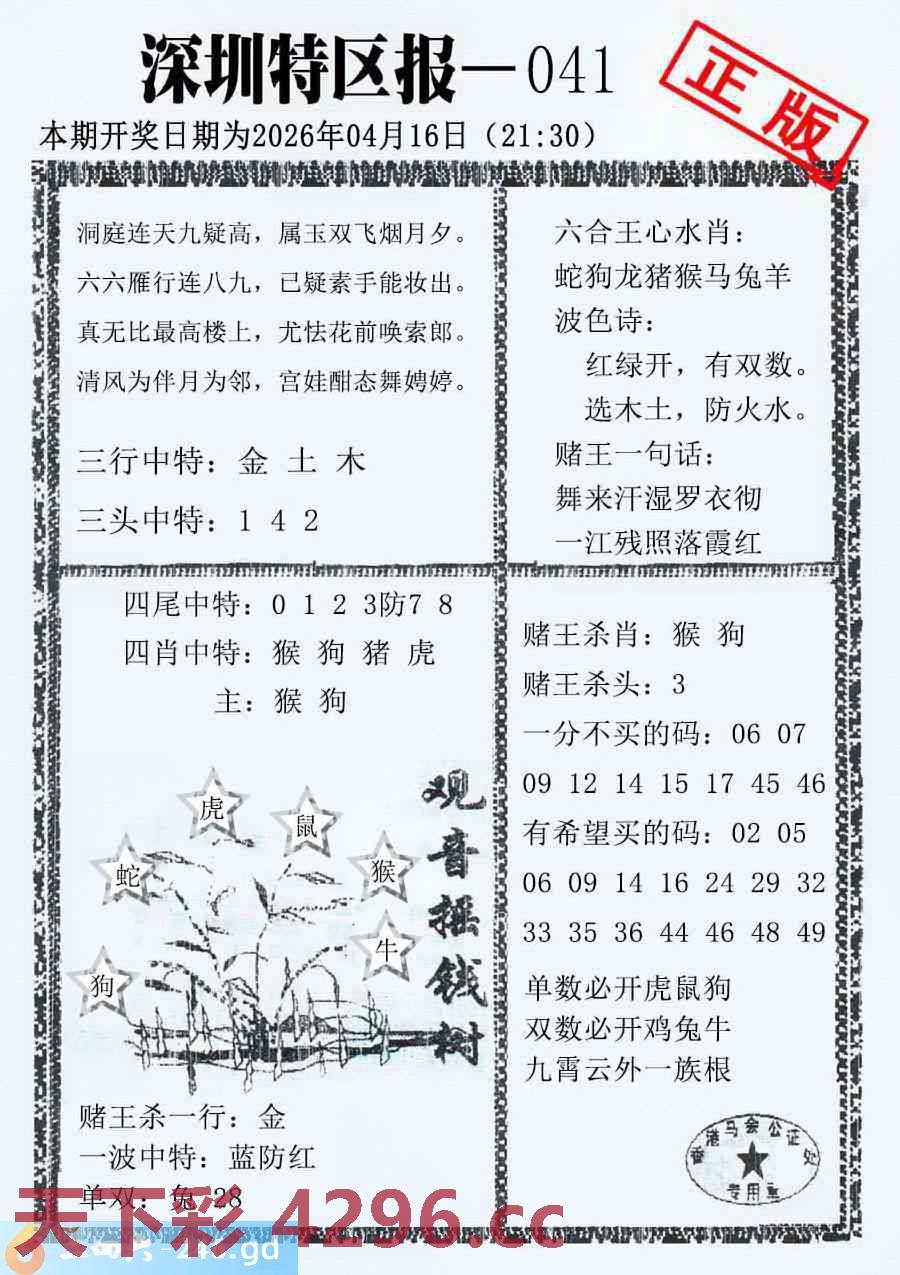 深圳特区报—041
正版
本期开奖日期为2026年04月16日（21:30）
洞庭连天九疑高，属玉双飞烟月夕。
六六雁行连八九，已疑素手能妆出。
真无比最高楼上，尤怯花前唤索郎。
清风为伴月为邻，宫娃酣态舞娉婷。
三行中特：金 土 木
三头中特：1 4 2
六合王心水肖：
蛇狗龙猪猴马兔羊
波色诗：
红绿开，有双数。
选木土，防火水。
赌王一句话：
舞来汗湿罗衣彻
一江残照落霞红
四尾中特：0 1 2 3防7 8
四肖中特：猴 狗 猪 虎
主：猴 狗
虎
鼠
蛇
猴
牛
狗
观音摇钱树
赌王杀一行：金
一波中特：蓝防红
单双：兔 28
赌王杀肖：猴 狗
赌王杀头：3
一分不买的码：06 07
09 12 14 15 17 45 46
有希望买的码：02 05
06 09 14 16 24 29 32
33 35 36 44 46 48 49
单数必开虎鼠狗
双数必开鸡兔牛
九霄云外一族根
香港马会公证处
专用章
天下彩 4296.cc